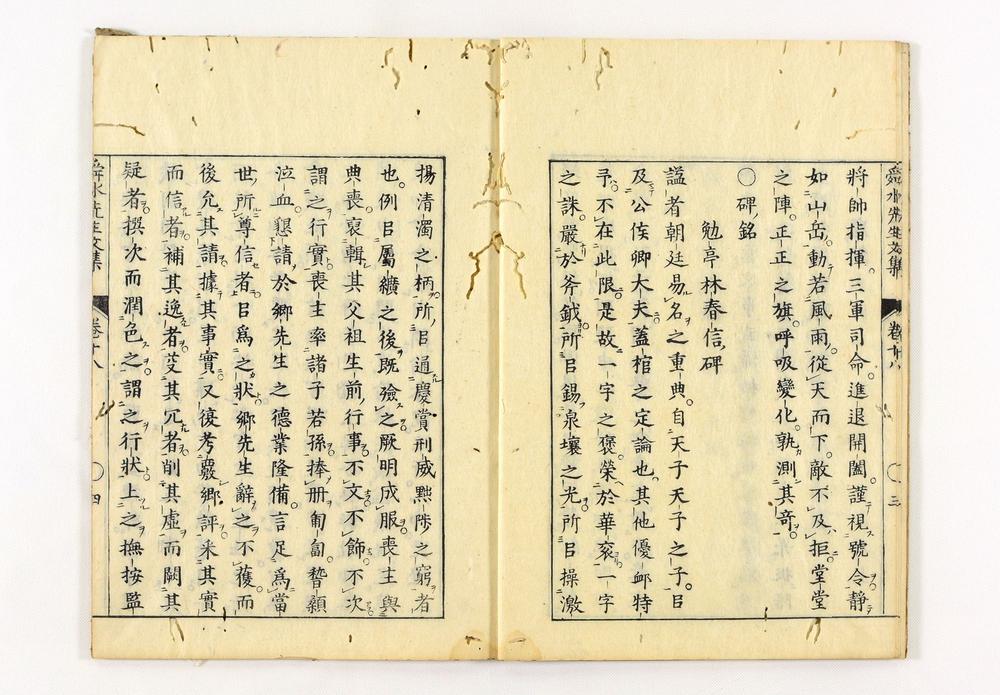 舜水先生文集
卷十八
三
將帥指揮三軍司命進退開闔謹視號令靜
如山岳動若風雨從天而下敵不及拒堂堂
之陣正正之旗呼吸變化孰測其竒
○碑銘
勉亭林春信碑
謚者朝廷易名之重典自天子天子之子㠯
及公侯卿大夫蓋棺之定論也其他優卹特
予不在此限是故一字之褒榮於華袞一字
之誅嚴於斧鉞所㠯錫泉壤之光所㠯操激
揚清濁之柄所㠯通慶賞刑威黜陟之窮者
也例㠯屬纊之後既殮之厥明成服喪主與
典喪裒輯其父祖生前行事不文不飾不次
謂之行實喪主率諸子若孫捧册匍匐晢顙
泣血懇請於鄉先生之德業隆備言足爲當
世所尊信者㠯爲之狀鄉先生辭之不獲而
後允其請據其事實又復考覈鄉評采其實
而信者補其逸者芟其冗者削其虛而闕其
疑者撰次而潤色之謂之行狀上之撫按監
舜水先生文集
卷十八
四